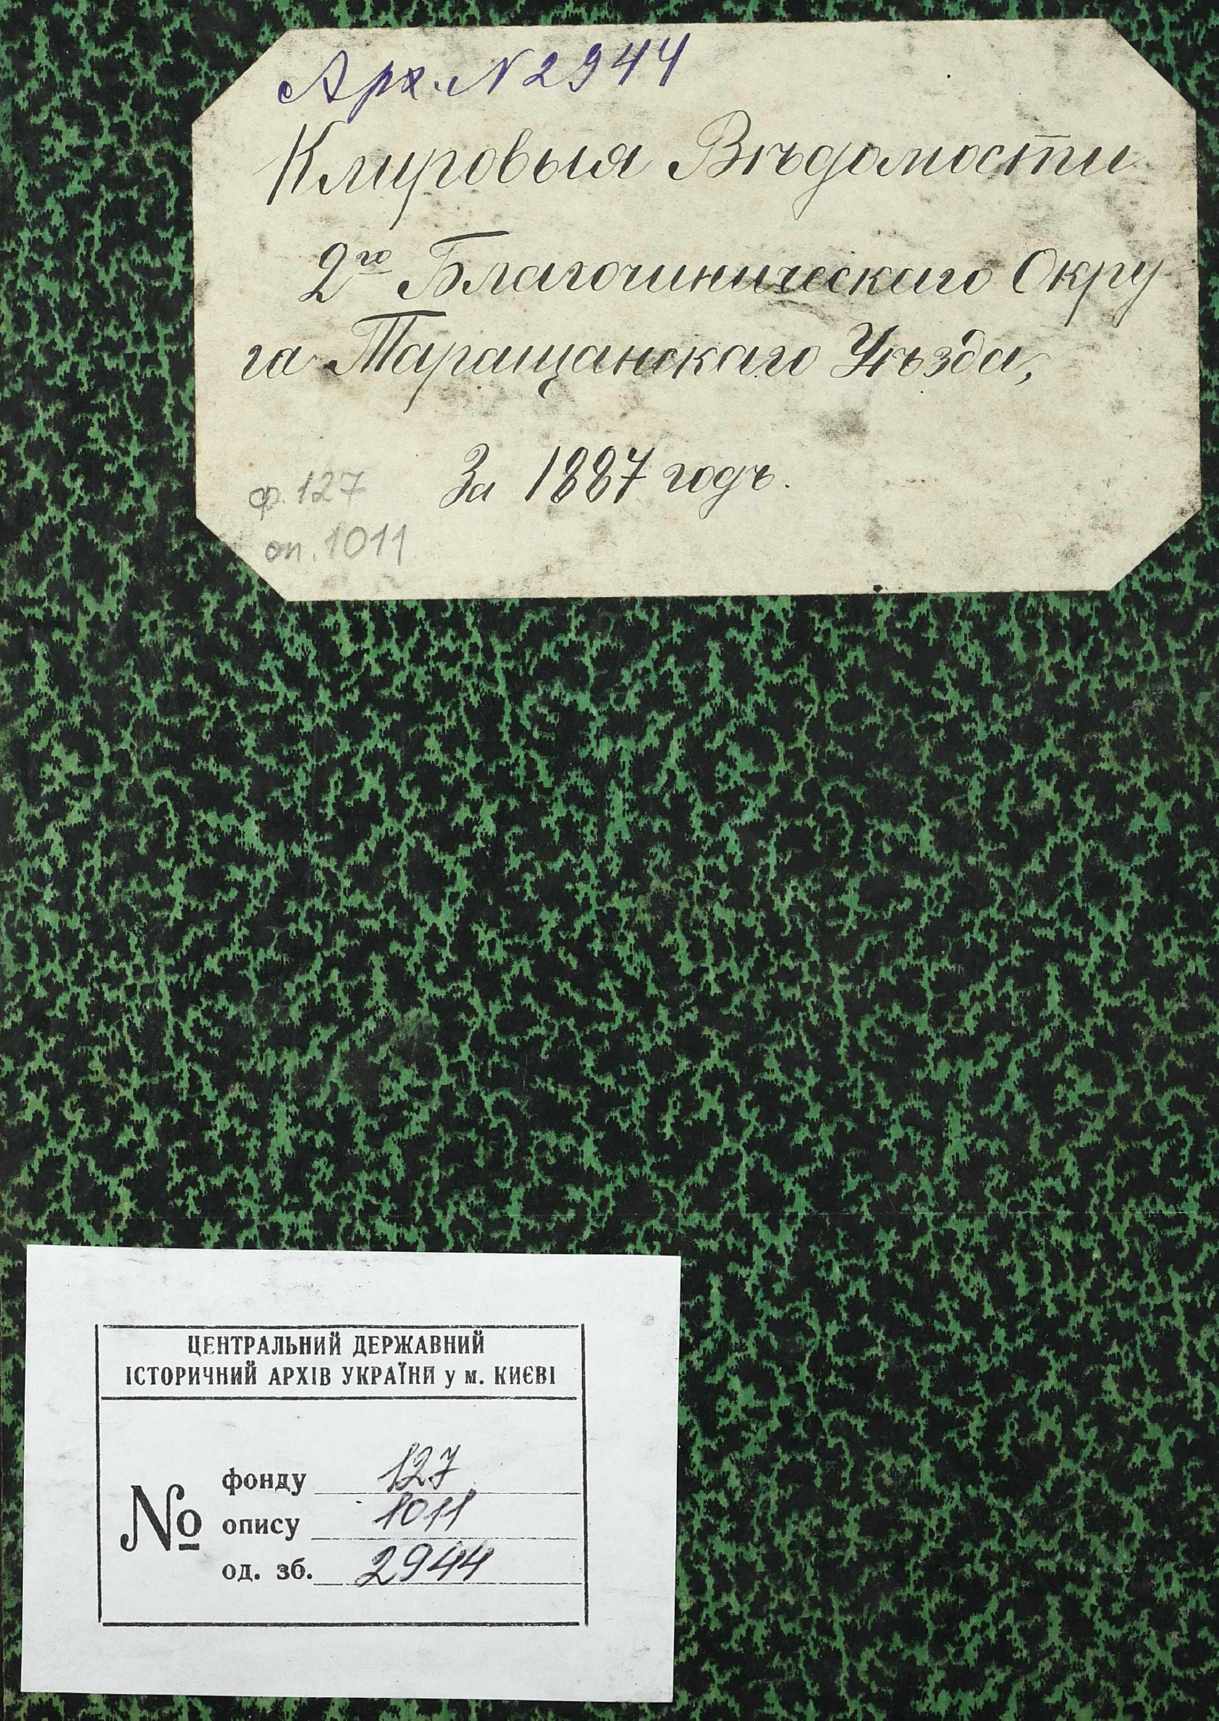 Арх. N 2944
Клировыя Вѣдомости
2го Благочиническаго Окру
га Таращанскаго Уѣзда,
За 1887 годъ.
ф. 127
оп. 1011
ЦЕНТРАЛЬНИЙ ДЕРЖАВНИЙ
ІСТОРИЧНИЙ АРХІВ УКРАЇНИ у м. КИЄВІ
№
фонду 127
опису 1011
од. зб. 2944